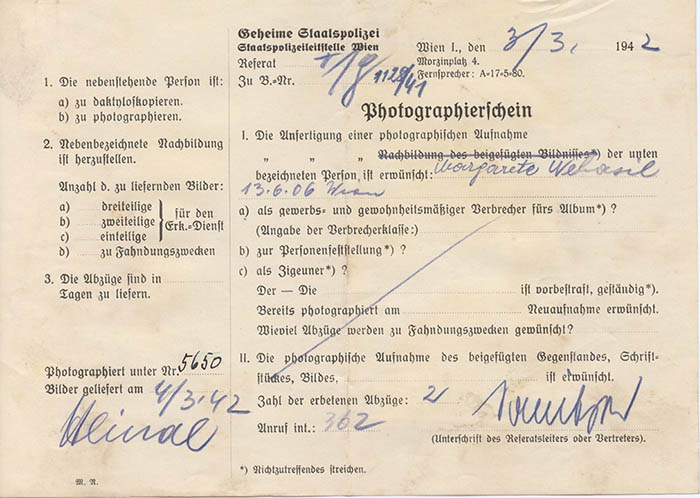 Geheime Staatspolizei
Staatspolizeileitstelle Wien
Referat
Zu B.-Nr. 1128/41
Wien I., den 3/3. 1942
Morzinplatz 4.
Fernsprecher: A=17=5=80.
1. Die nebenstehende Person ist:
a) zu daktyloskopieren.
b) zu photographieren.
2. Nebenbezeichnete Nachbildung
ist herzustellen.
Anzahl d. zu liefernden Bilder:
a) dreiteilige
b) zweiteilige
c) einteilige
für den
Erk.=Dienst
d) zu Fahndungszwecken
3. Die Abzüge sind in
Tagen zu liefern.
Photographiert unter Nr. 5650
Bilder geliefert am 4/3.42
M. R.
Photographierschein
I. Die Anfertigung einer photographischen Aufnahme
„ „ „ Nachbildung des beigefügten Bildnisses*) der unten
bezeichneten Person, ist erwünscht: Margarete
13.6.06 Wien
a) als gewerbs= und gewohnheitsmäßiger Verbrecher fürs Album*) ?
(Angabe der Verbrecherklasse:)
b) zur Personenfeststellung*) ?
c) als Zigeuner*) ?
Der — Die ist vorbestraft, geständig*).
Bereits photographiert am Neuaufnahme erwünscht.
Wieviel Abzüge werden zu Fahndungszwecken gewünscht?
II. Die photographische Aufnahme des beigefügten Gegenstandes, Schrift=
stückes, Bildes, ist erwünscht.
Zahl der erbetenen Abzüge: 2
Anruf int.: 362
(Unterschrift des Referatsleiters oder Vertreters).
*) Nichtzutreffendes streichen.